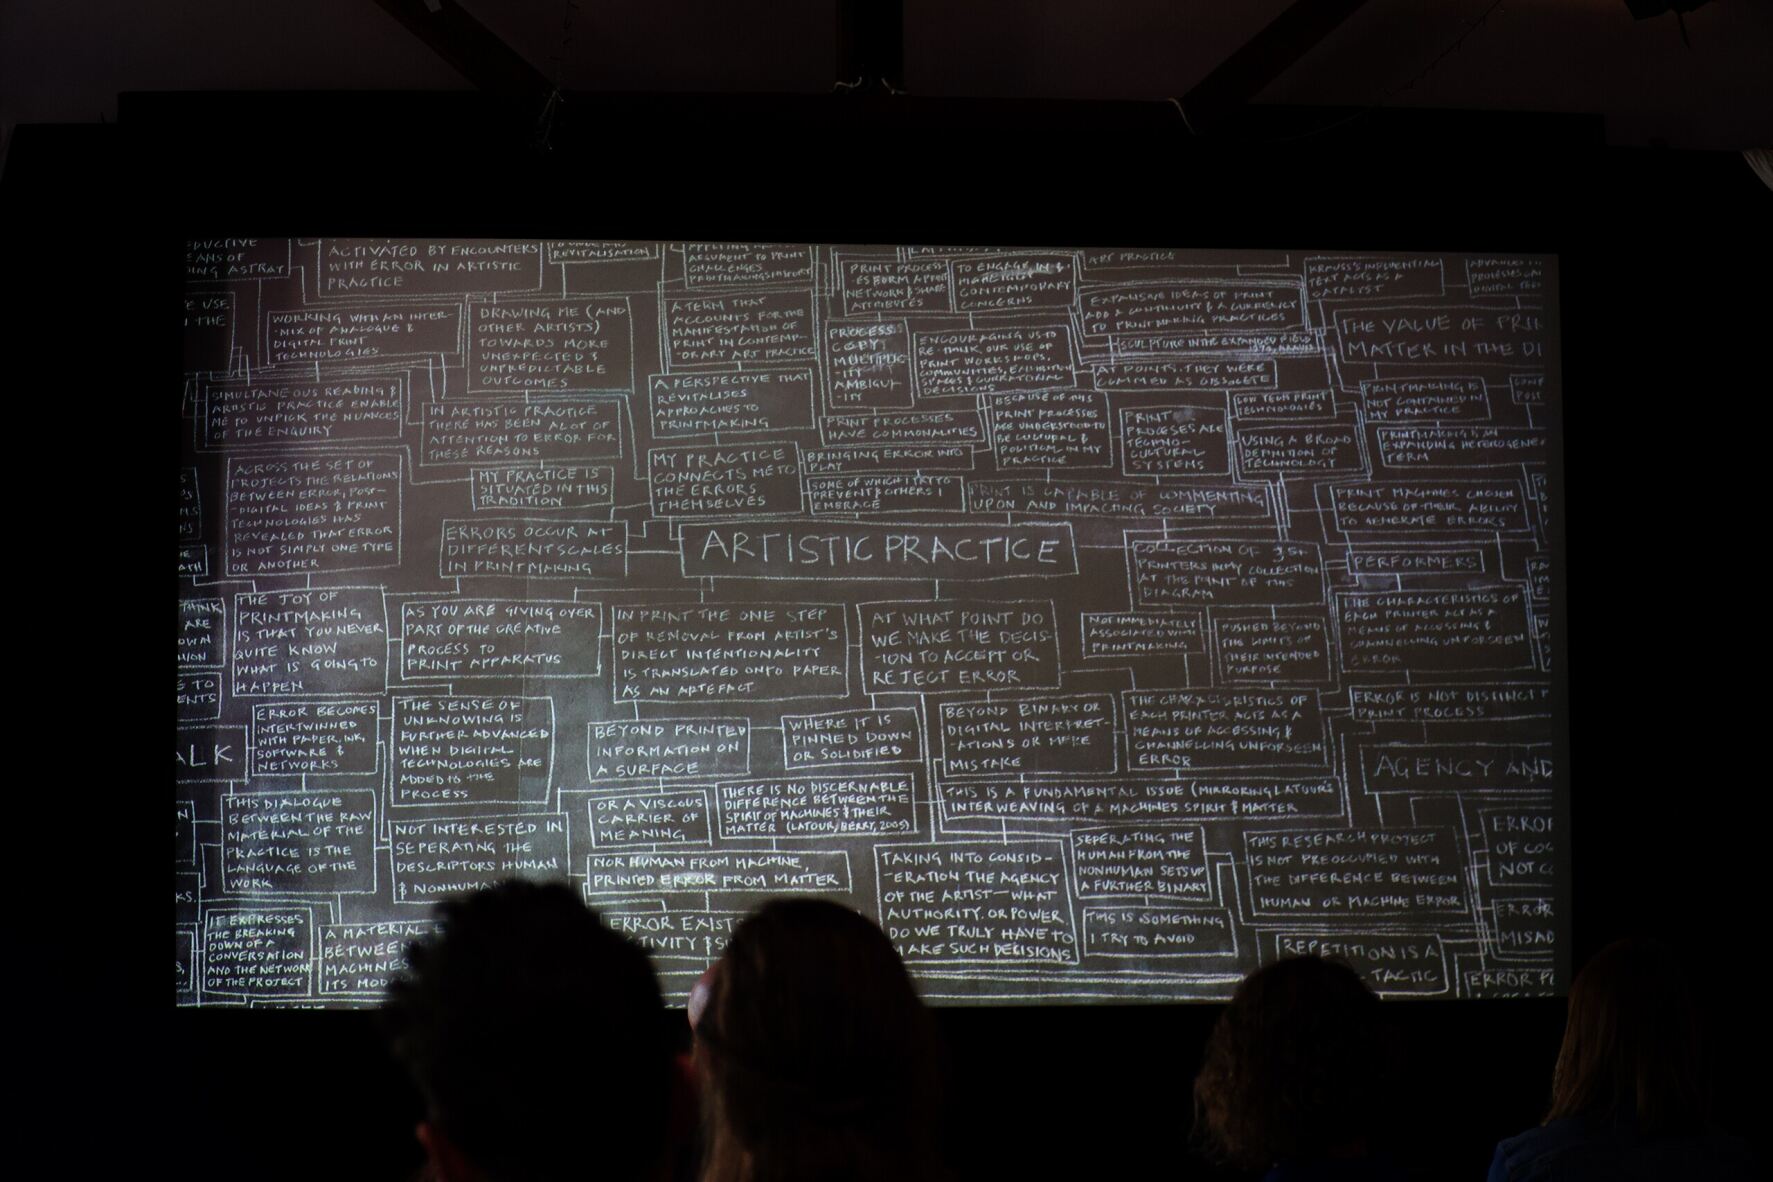 ACTIVATED BY ENCOUNTERS
WITH ERROR IN ARTISTIC
PRACTICE
REVITALISATION
ARGUMENT TO PRINT
CHALLENGES
PRINT PROCESS-
-ES FORM A
NETWORK & SHARE
ATTRIBUTES
TO ENGAGE IN &
CONTEMPORARY
CONCERNS
ART PRACTICE
KRAUSS'S INFLUENTIAL
TEXT ACTS AS A
CATALYST
ASTRAY
WORKING WITH AN INTER-
-MIX OF ANALOGUE &
DIGITAL PRINT
TECHNOLOGIES
DRAWING ME (AND
OTHER ARTISTS)
TOWARDS MORE
UNEXPECTED &
UNPREDICTABLE
OUTCOMES
A TERM THAT
ACCOUNTS FOR THE
MANIFESTATION OF
PRINT IN CONTEMP-
-ORARY ART PRACTICE
PROCESS
COPY
MULTIPLIC-
-ITY
AMBIGU-
-ITY
ENCOURAGING US TO
RE-THINK OUR USE OF
PRINT WORKSHOPS,
COMMUNITIES, EXHIBITION
SPACES & CURATORIAL
DECISIONS
EXPANSIVE IDEAS OF PRINT
ADD A CONTINUITY & A CURRENCY
TO PRINTMAKING PRACTICES
SCULPTURE IN THE EXPANDED FIELD
1979, KRAUSS
AT POINTS, THEY WERE
COMMED AS OBSOLETE
THE VALUE OF
MATTER IN THE
SIMULTANEOUS READING &
ARTISTIC PRACTICE ENABLE
ME TO UNPICK THE NUANCES
OF THE ENQUIRY
IN ARTISTIC PRACTICE
THERE HAS BEEN A LOT OF
ATTENTION TO ERROR FOR
THESE REASONS
A PERSPECTIVE THAT
REVITALISES
APPROACHES TO
PRINTMAKING
PRINT PROCESSES
HAVE COMMONALITIES
BECAUSE OF THIS
PRINT PROCESSES
ARE UNDERSTOOD TO
BE CULTURAL &
POLITICAL IN MY
PRACTICE
PRINT
PROCESSES ARE
TECHNO-
CULTURAL
SYSTEMS
LOW TECH PRINT
TECHNOLOGIES
USING A BROAD
DEFINITION OF
TECHNOLOGY
PRINTMAKING IS
NOT CONTAINED IN
MY PRACTICE
PRINTMAKING IS AN
EXPANDING
TERM
ACROSS THE SET OF
PROJECTS THE RELATIONS
BETWEEN ERROR, POST-
-DIGITAL IDEAS & PRINT
TECHNOLOGIES HAS
REVEALED THAT ERROR
IS NOT SIMPLY ONE TYPE
OR ANOTHER
MY PRACTICE IS
SITUATED IN THIS
TRADITION
MY PRACTICE
CONNECTS ME TO
THE ERRORS
THEMSELVES
BRINGING ERROR INTO
PLAY
SOME OF WHICH I TRY TO
PREVENT & OTHERS I
EMBRACE
PRINT IS CAPABLE OF COMMENTING
UPON AND IMPACTING SOCIETY
PRINT MACHINES CHOSEN
BECAUSE OF THEIR ABILITY
TO GENERATE ERRORS
ERRORS OCCUR AT
DIFFERENT SCALES
IN PRINTMAKING
ARTISTIC PRACTICE
COLLECTION OF 35+
PRINTERS IN MY COLLECTION
AT THE POINT OF THIS
DIAGRAM
PERFORMERS
THE JOY OF
PRINTMAKING
IS THAT YOU NEVER
QUITE KNOW
WHAT IS GOING TO
HAPPEN
AS YOU ARE GIVING OVER
PART OF THE CREATIVE
PROCESS TO
PRINT APPARATUS
IN PRINT THE ONE STEP
OF REMOVAL FROM ARTIST'S
DIRECT INTENTIONALITY
IS TRANSLATED ONTO PAPER
AS AN ARTEFACT
AT WHAT POINT DO
WE MAKE THE DECIS-
-ION TO ACCEPT OR
REJECT ERROR
NOT IMMEDIATELY
ASSOCIATED WITH
PRINTMAKING
PUSHED BEYOND
THE LIMITS OF
THEIR INTENDED
PURPOSE
THE CHARACTERISTICS OF
EACH PRINTER ACT AS A
MEANS OF ACCESSING &
CHANNELLING UNFORSEEN
ERROR
ERROR BECOMES
INTERTWINNED
WITH PAPER, INK,
SOFTWARE &
NETWORKS
THE SENSE OF
UNKNOWING IS
FURTHER ADVANCED
WHEN DIGITAL
TECHNOLOGIES ARE
ADDED TO THE
PROCESS
BEYOND PRINTED
INFORMATION ON
A SURFACE
WHERE IT IS
PINNED DOWN
OR SOLIDIFIED
BEYOND BINARY OR
DIGITAL INTERPRET-
-ATIONS OR MERE
MISTAKE
THE CHARACTERISTICS OF
EACH PRINTER ACTS AS A
MEANS OF ACCESSING &
CHANNELLING UNFORSEEN
ERROR
ERROR IS NOT DISTINCT
PRINT PROCESS
AGENCY AND
THIS DIALOGUE
BETWEEN THE RAW
MATERIAL OF THE
PRACTICE IS THE
LANGUAGE OF THE
WORK
NOT INTERESTED IN
SEPERATING THE
DESCRIPTORS HUMAN
& NONHUMAN
OR A VISCOUS
CARRIER OF
MEANING
THERE IS NO DISCERNABLE
DIFFERENCE BETWEEN THE
SPIRIT OF MACHINES & THEIR
MATTER (LATOUR, BERRY, 2005)
THIS IS A FUNDAMENTAL ISSUE (MIRRORING LATOUR'S
INTERWEAVING OF A MACHINES SPIRIT & MATTER
NOR HUMAN FROM MACHINE,
PRINTED ERROR FROM MATTER
TAKING INTO CONSID-
-ERATION THE AGENCY
OF THE ARTIST — WHAT
AUTHORITY OR POWER
DO WE TRULY HAVE TO
MAKE SUCH DECISIONS
SEPERATING THE
HUMAN FROM THE
NONHUMAN SETS UP
A FURTHER BINARY
THIS IS SOMETHING
I TRY TO AVOID
THIS RESEARCH PROJECT
IS NOT PREOCCUPIED WITH
THE DIFFERENCE BETWEEN
HUMAN OR MACHINE ERROR
IT EXPRESSES
THE BREAKING
DOWN OF A
CONVERSATION
AND THE NETWORK
OF THE PROJECT
A MATERIAL
BETWEEN
MACHINES
ITS
ERROR
REPETITION IS A
TACTIC
ERROR
OF
NOT
ERROR
ERROR